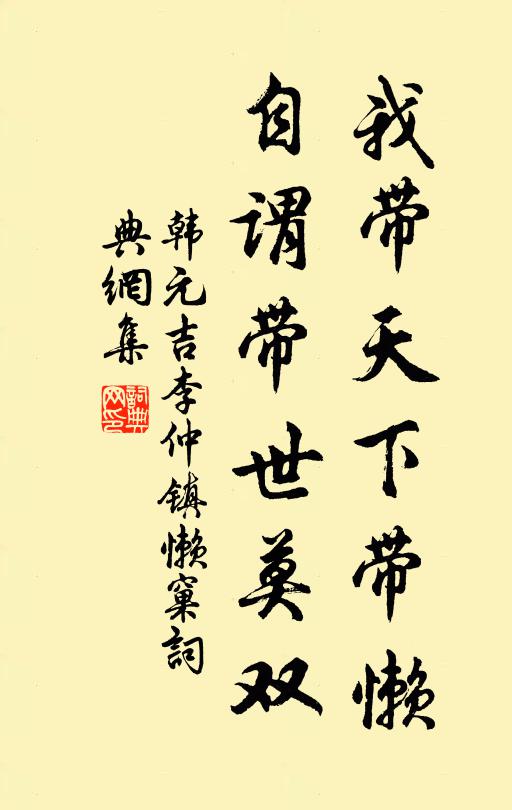 我带天下带懒
自谓带世莫双
韩元吉李仲镇懒窠詞
典網集
詞典网印